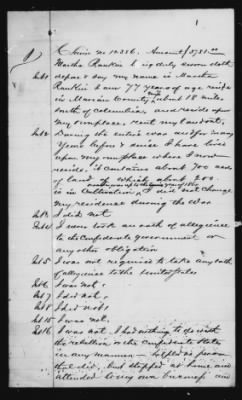 1
Claim no 10,256. Amount $3781.00
Martha Rankin being duly sworn doth
depose & say my name is Martha
Rankin I am 77 years of age reside
in Marion County, Miss about 18 miles
south of Columbia, and reside upon
my own place, rent my land out,
Int 2 During the entire war and for many
years before & since I have lived
upon my own place where I now
reside, it contains about 700 acres
of land of which about 200
is in Cultivation, I did not change
my residence during the war
Int 3 I did not
Int 4 I never took an oath of allegiance
to the Confederate government or
any other obligation
Int 5 I was not required to take any oath
of allegiance to the United States
Int 6 I was not.
Int 7 I did not.
Int 8 I had not.
Int 15 I was not.
Int 16 I was not. I had nothing to do with
the rebellion or the Confederate States
in any manner
that did, but stopped at home and
attended to my own business and